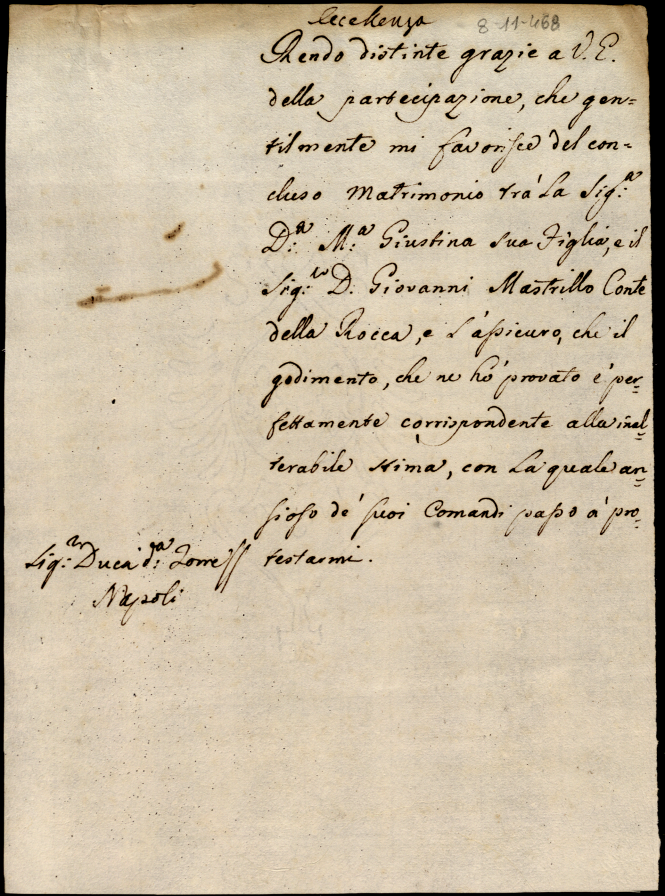 Eccellenza
8-11-468
Rendo distinte grazie a V. E.
della partecipazione, che gen=
tilmente mi favorisce del con=
cluso Matrimonio trà La Sig.ª
D.ª M.ª Giustina sua Figlia, e il
Sig.r D. Giovanni Mastrillo Conte
della Rocca, e L'assicuro, che il
godimento, che ne hò provato è per=
fettamente corrispondente alla inal=
terabile stima, con La quale an=
sioso de' suoi Comandi passo à pro=
testarmi.
Sig.r Duca d.ª Torre
Napoli